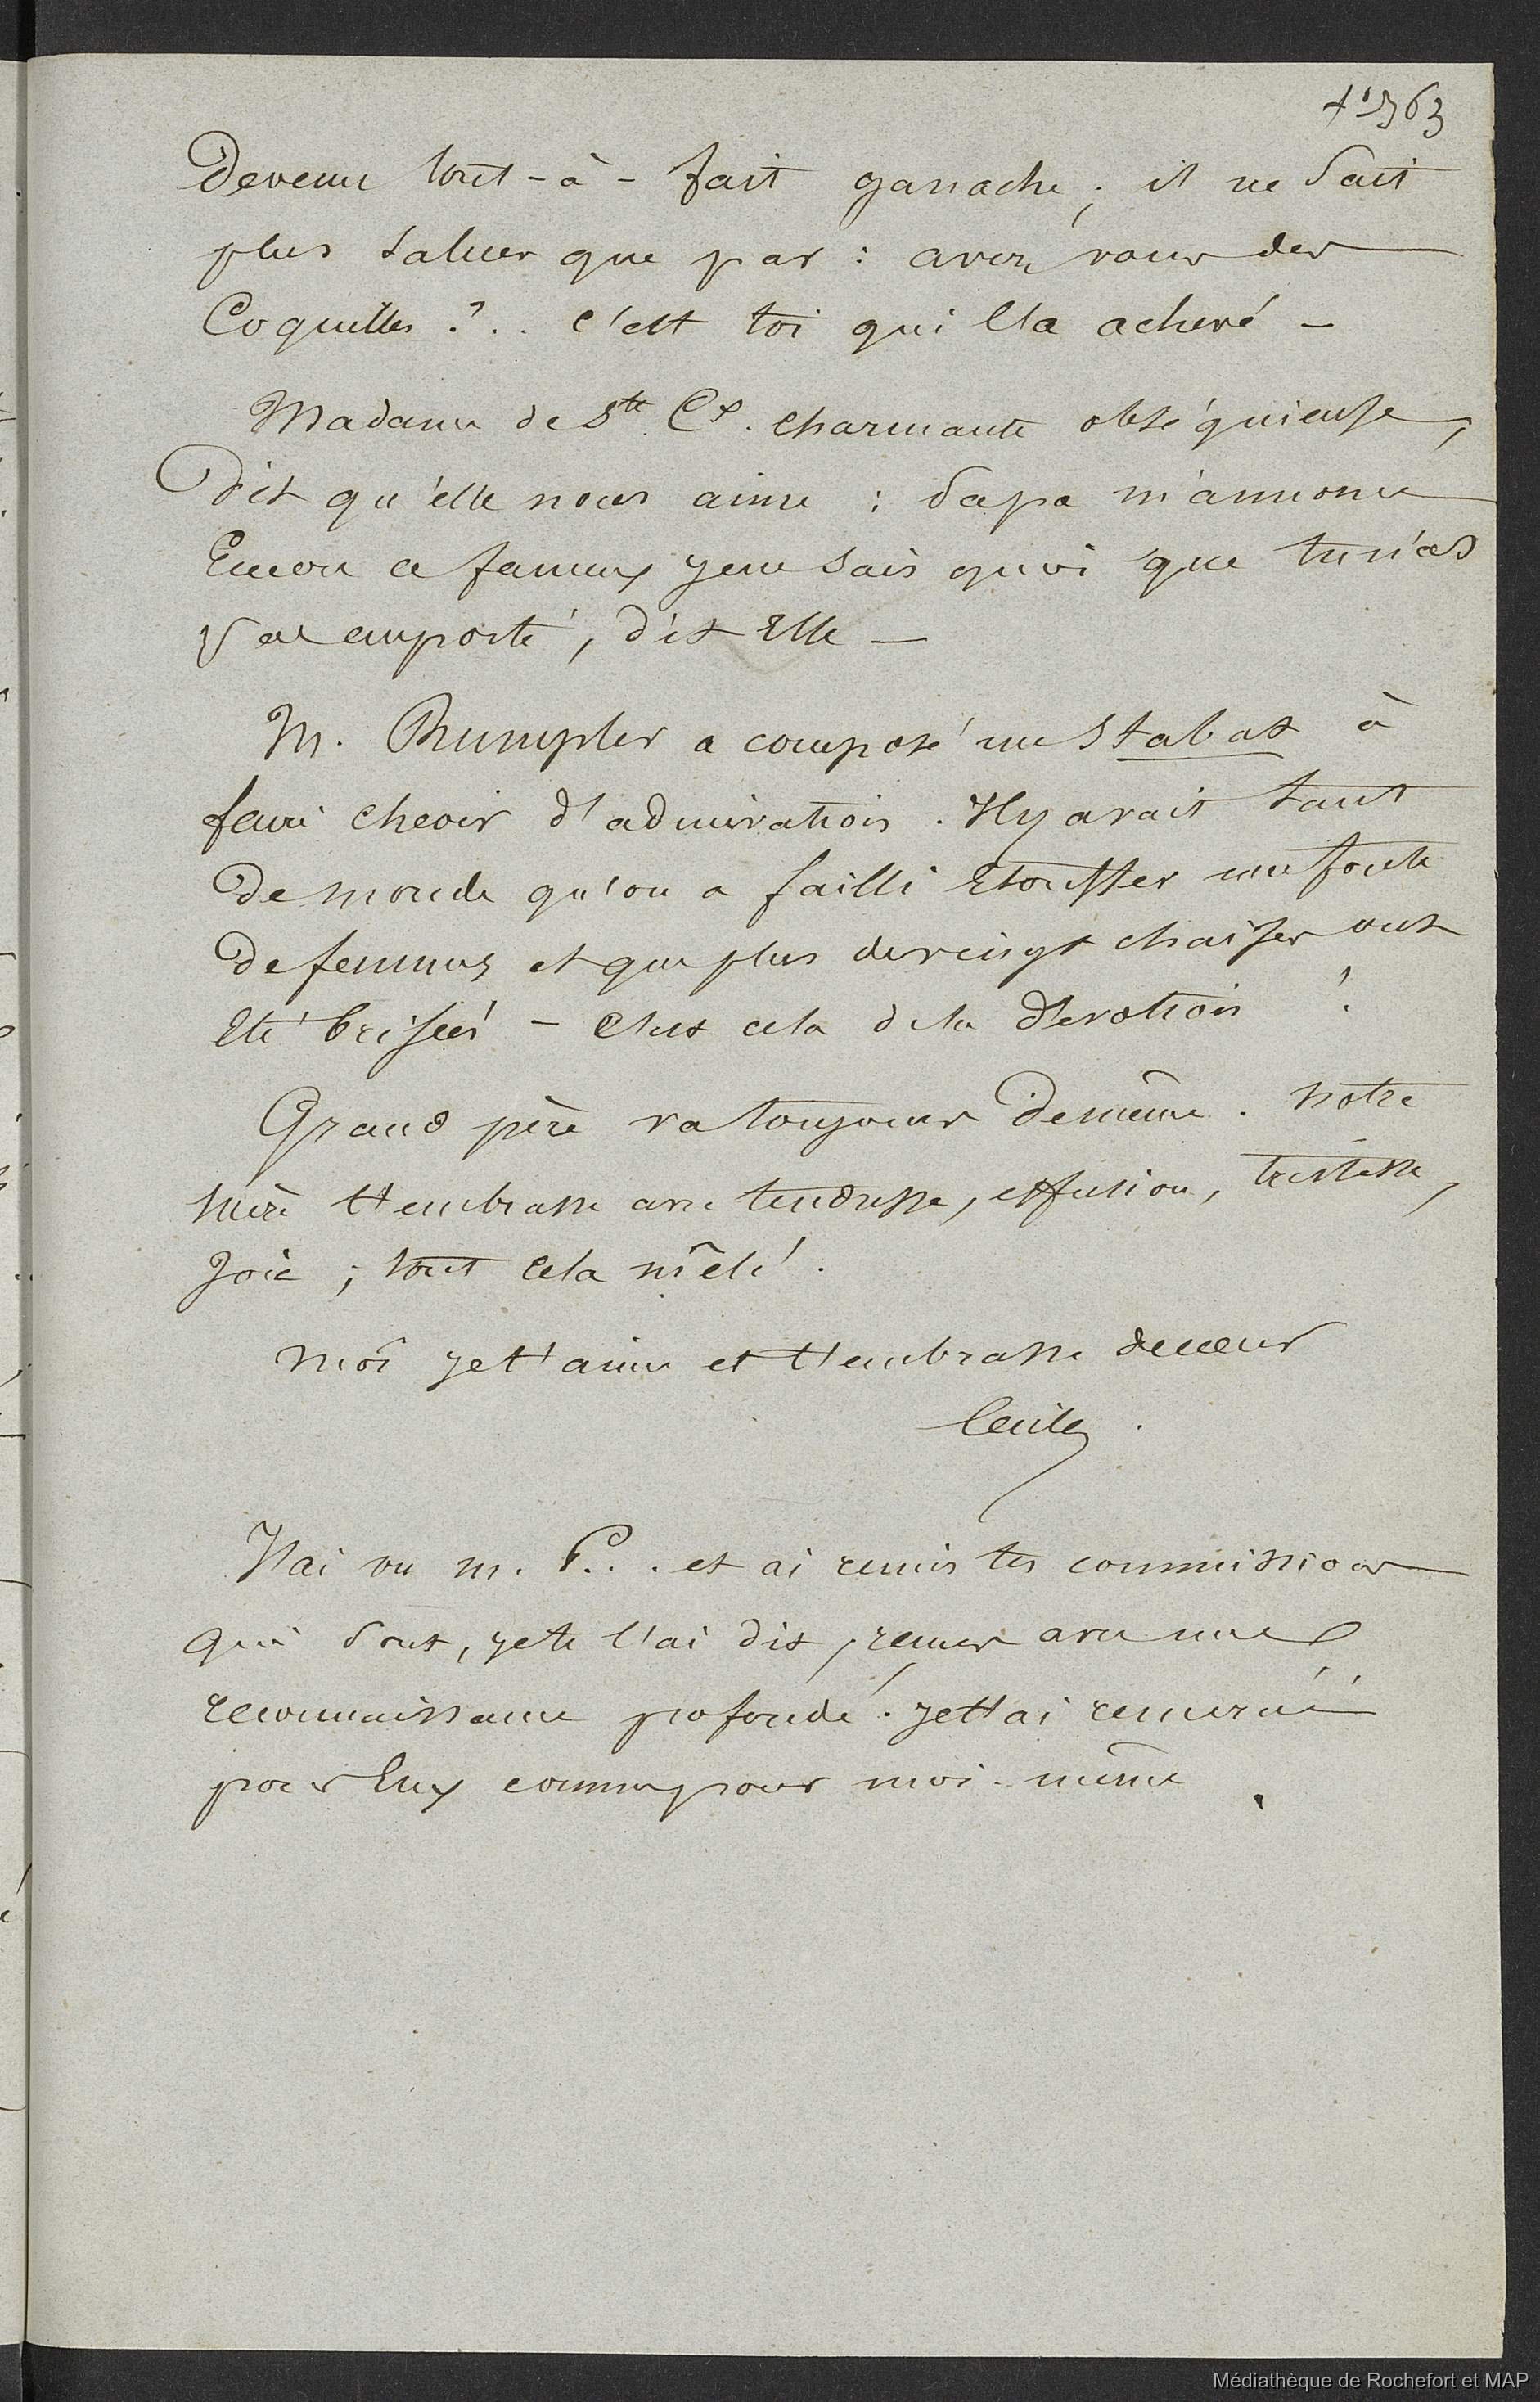 363
Devenu tout-à-fait ganache ; il ne sait
plus saluer que par : avez vous des
Coquilles ? .. c'est toi qui l'a achevé –
Madame de Ste Cx. charmante obséquieuse,
Dit qu'elle nous aime : papa m'annonce
Encore ce fameux je ne sais quoi que tu n'as
pas emporté, dit Elle –
M. Rumpler a composé un Stabat à
faire cheoir d'admiration. Il y avait tant
De monde qu'on a failli Etouffer une foule
De femmes et que plus de vingt chaises ont
Eté brisées – Est cela de la Dévotion ?
Grand père va toujours De même. notre
mère t'embrasse avec tendresse, effusion, tristesse,
Joie ; tout cela mêlé.
moi je t'aime et t'embrasse de cœur
Cécile.
J'ai vu m. P... et ai remis tes commissions
qui sont, je te l'ai dit, reçues avec une
reconnaissance profonde. je t'ai remercié
pour Eux comme pour moi-même
Médiathèque de Rochefort et MAP